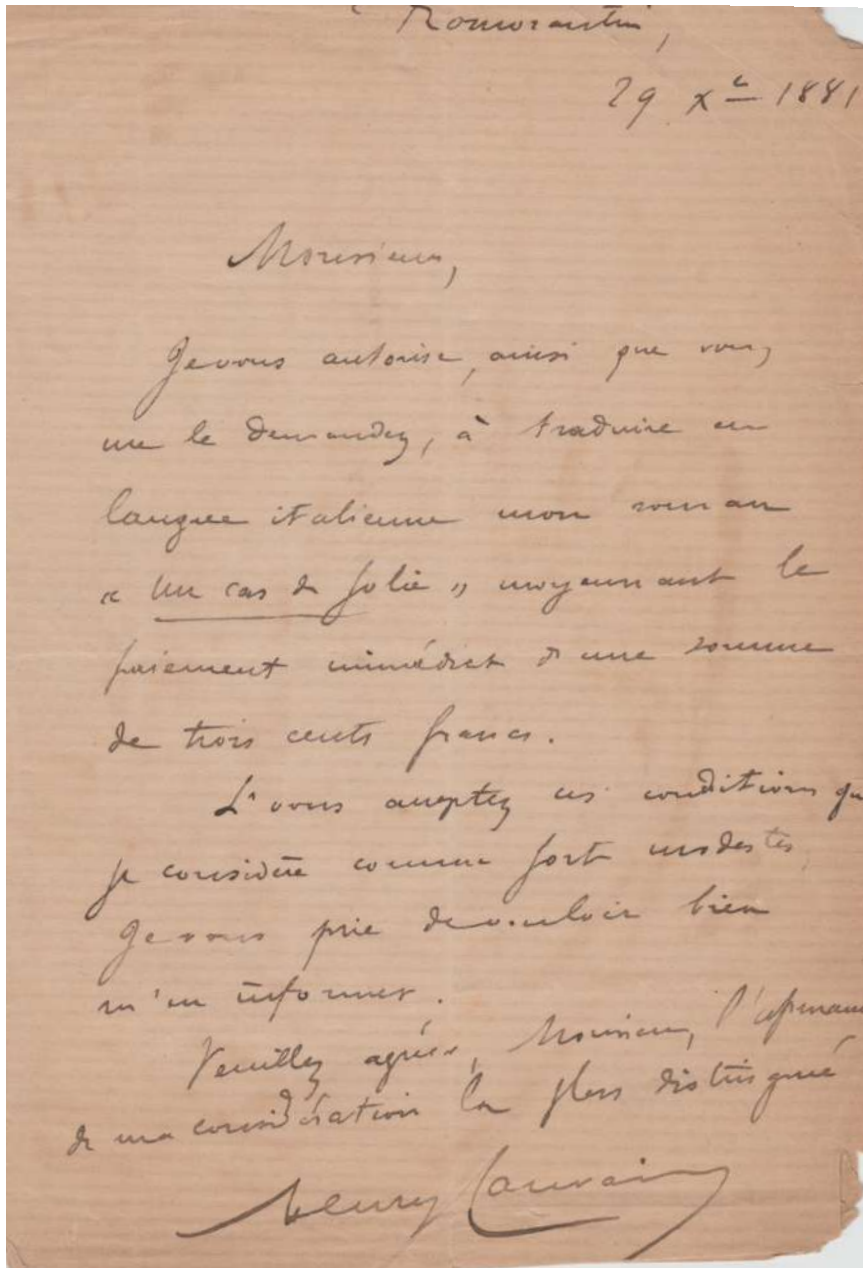 Romorantin,
29 Xbre 1881
Monsieur,
Je vous autorise, ainsi que vous
me le demandez, à traduire en
langue italienne mon roman
« Un cas de folie » moyennant le
paiement immédiat d'une somme
de trois cents francs.
Si vous acceptez ces conditions que
je considère comme fort modestes,
Je vous prie de vouloir bien
m'en informer.
Veuillez agréer, Monsieur, l'
de ma considération la plus distinguée
Henry Cauvain